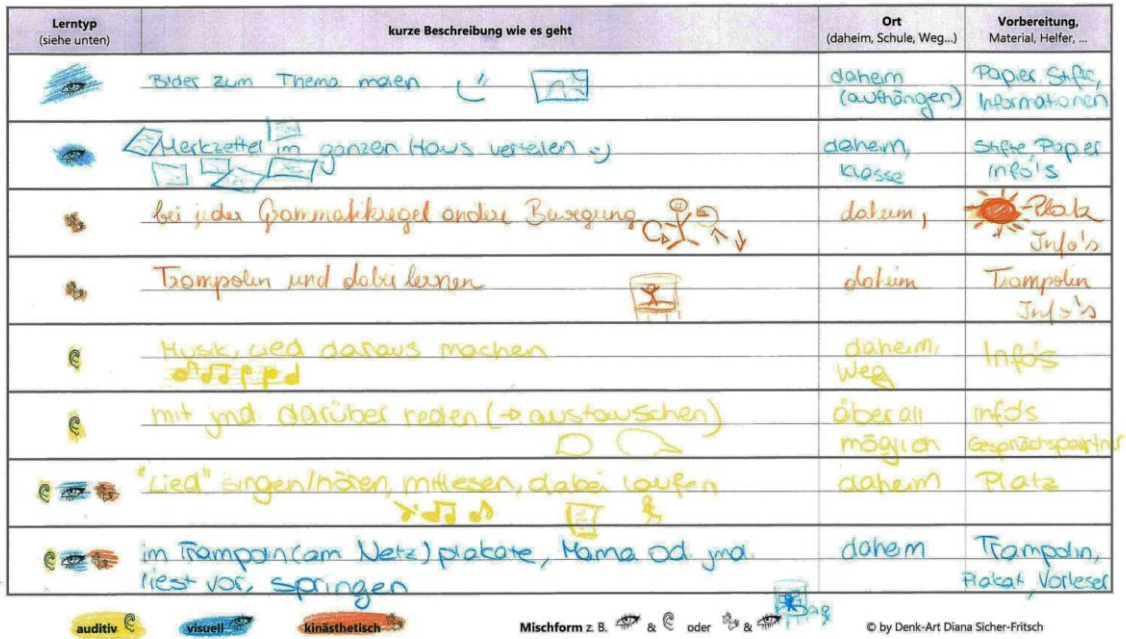 Lerntyp
(siehe unten)
kurze Beschreibung wie es geht
Ort
(daheim, Schule, Weg...)
Vorbereitung,
Material, Helfer, ...
Bilder zum Thema malen
daheim
(aufhängen)
Papier, Stifte,
Informationen
Merkzettel im ganzen Haus verteilen :-)
daheim,
Klasse
Stifte, Papier
Info's
bei jeder Grammatikregel andere Bewegung
daheim,
Platz
Info's
Trampolin und dabei lernen
daheim
Trampolin
Info's
Musik, Lied daraus machen
daheim,
Weg
Info's
mit jmd. darüber reden (→ austauschen)
überall
möglich
Info's
Gesprächspartner
"Lied" singen/hören, mitlesen, dabei laufen
daheim
Platz
im Trampolin (am Netz) plakate, Mama od. jmd.
liest vor, springen
daheim
Trampolin,
Plakat, Vorleser
auditiv
visuell
kinästhetisch
Mischform z. B. & oder &
© by Denk-Art Diana Sicher-Fritsch